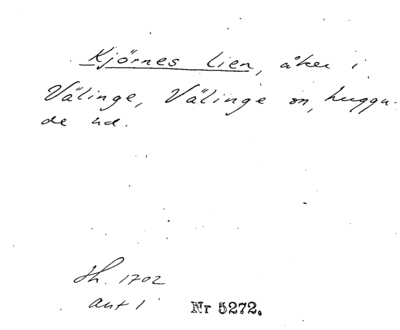 Kjörnes lien, åker i
Välinge, Välinge sn, luggu-
de hd.
Jh. 1702
ant 1
Nr 5272.